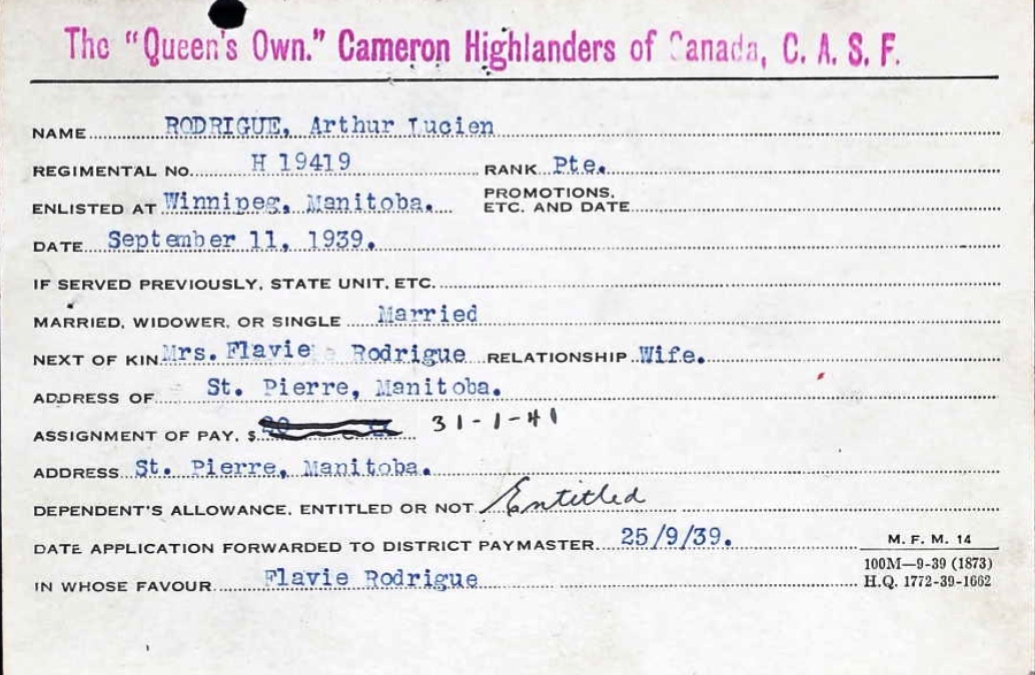 The "Queen's Own." Cameron Highlanders of Canada, C. A. S. F.
NAME RODRIGUE, Arthur Lucien
REGIMENTAL NO. H 19419 RANK Pte.
ENLISTED AT Winnipeg, Manitoba. PROMOTIONS, ETC. AND DATE
DATE September 11, 1939.
IF SERVED PREVIOUSLY, STATE UNIT, ETC.
MARRIED, WIDOWER, OR SINGLE Married
NEXT OF KIN Mrs. Flavie Rodrigue RELATIONSHIP Wife.
ADDRESS OF St. Pierre, Manitoba.
ASSIGNMENT OF PAY, $ 31-1-41
ADDRESS St. Pierre, Manitoba.
DEPENDENT'S ALLOWANCE, ENTITLED OR NOT Entitled
DATE APPLICATION FORWARDED TO DISTRICT PAYMASTER 25/9/39.
M. F. M. 14
100M—9-39 (1873)
IN WHOSE FAVOUR Flavie Rodrigue
H.Q. 1772-39-1662